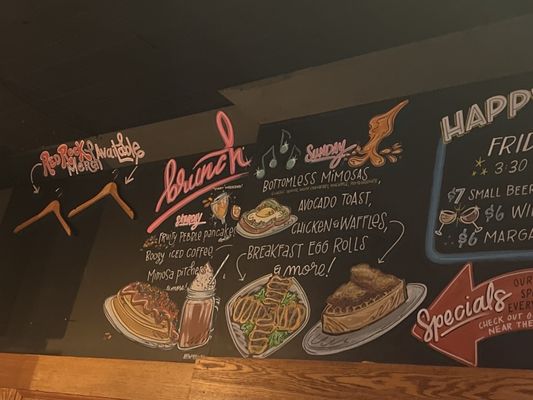 Red Rock
Merch Available
brunch
SUNDAY
BOTTOMLESS MIMOSAS
AVOCADO TOAST,
CHICKEN & WAFFLES,
BREAKFAST EGG ROLLS
& more!
FRUITY PEBBLE PANCAKE
BOOZY ICED COFFEE
MIMOSA PITCHE
HAPPY
FRID
3:30
$7 SMALL BEER
$6 WI
$6 MARGA
Specials
OUR
EVERY
CHECK OUT O
NEAR THE